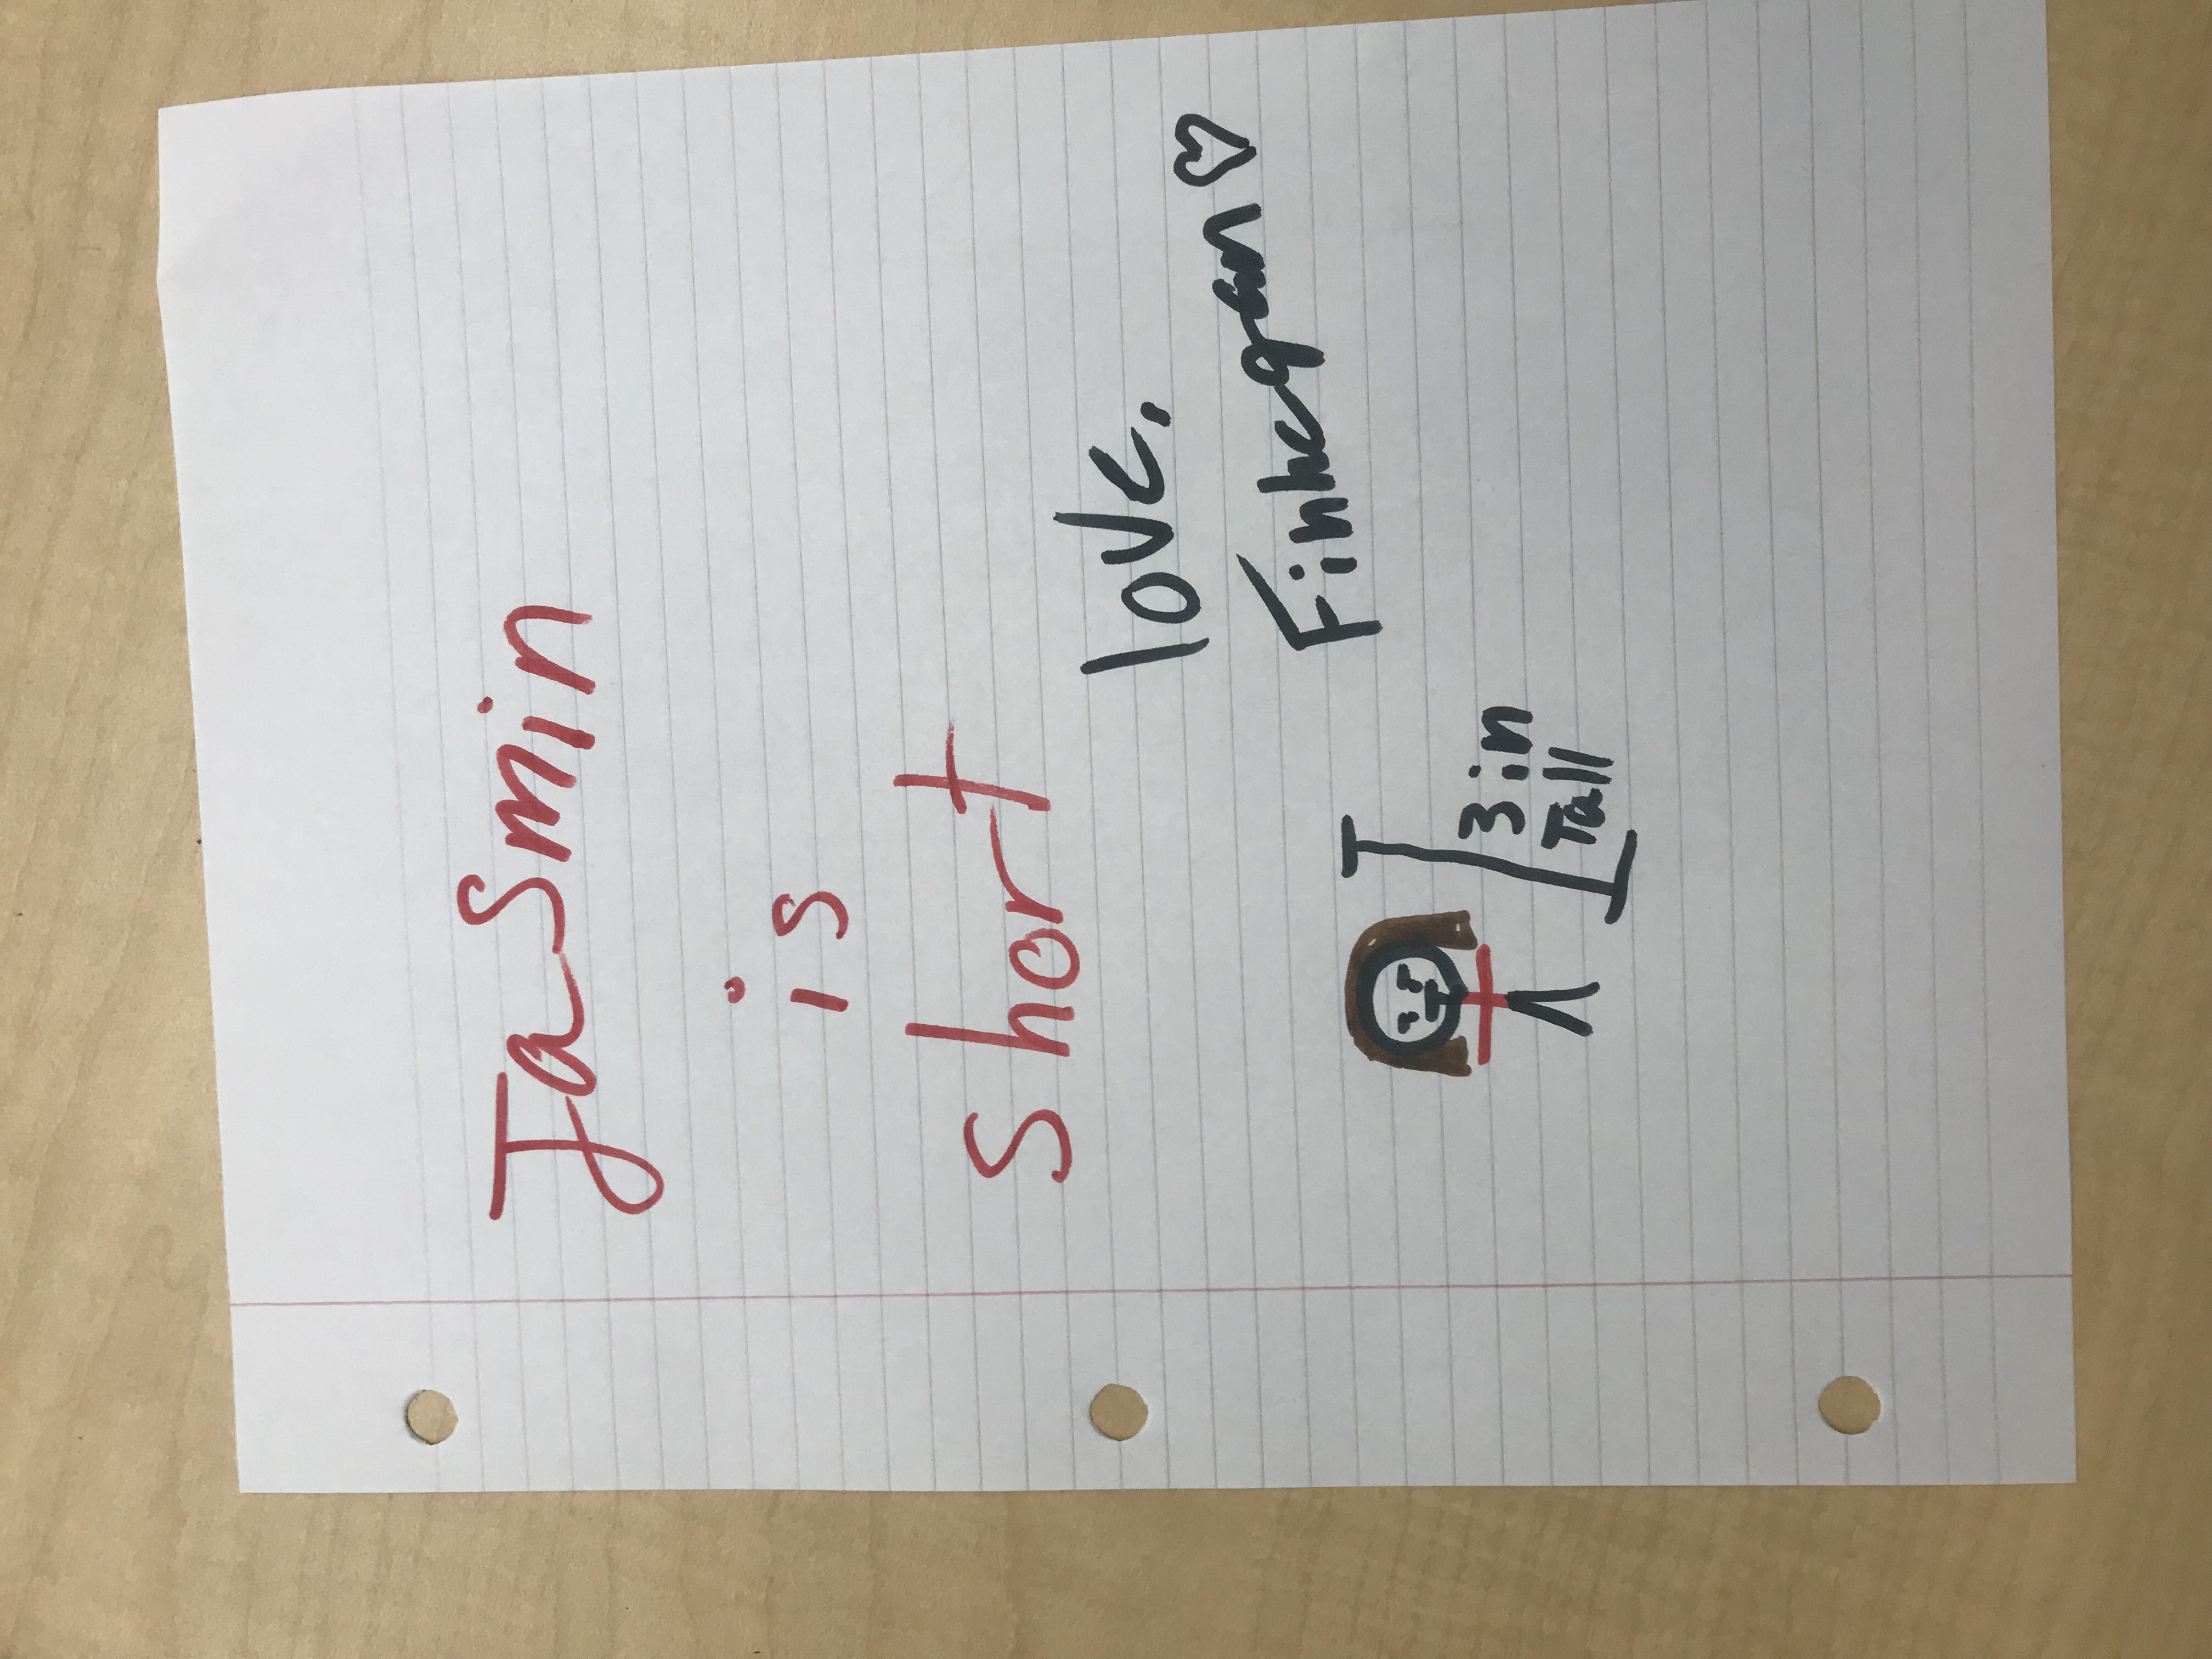 Jasmin
is
short
love,
Finnegan ♡
3 in
Tall